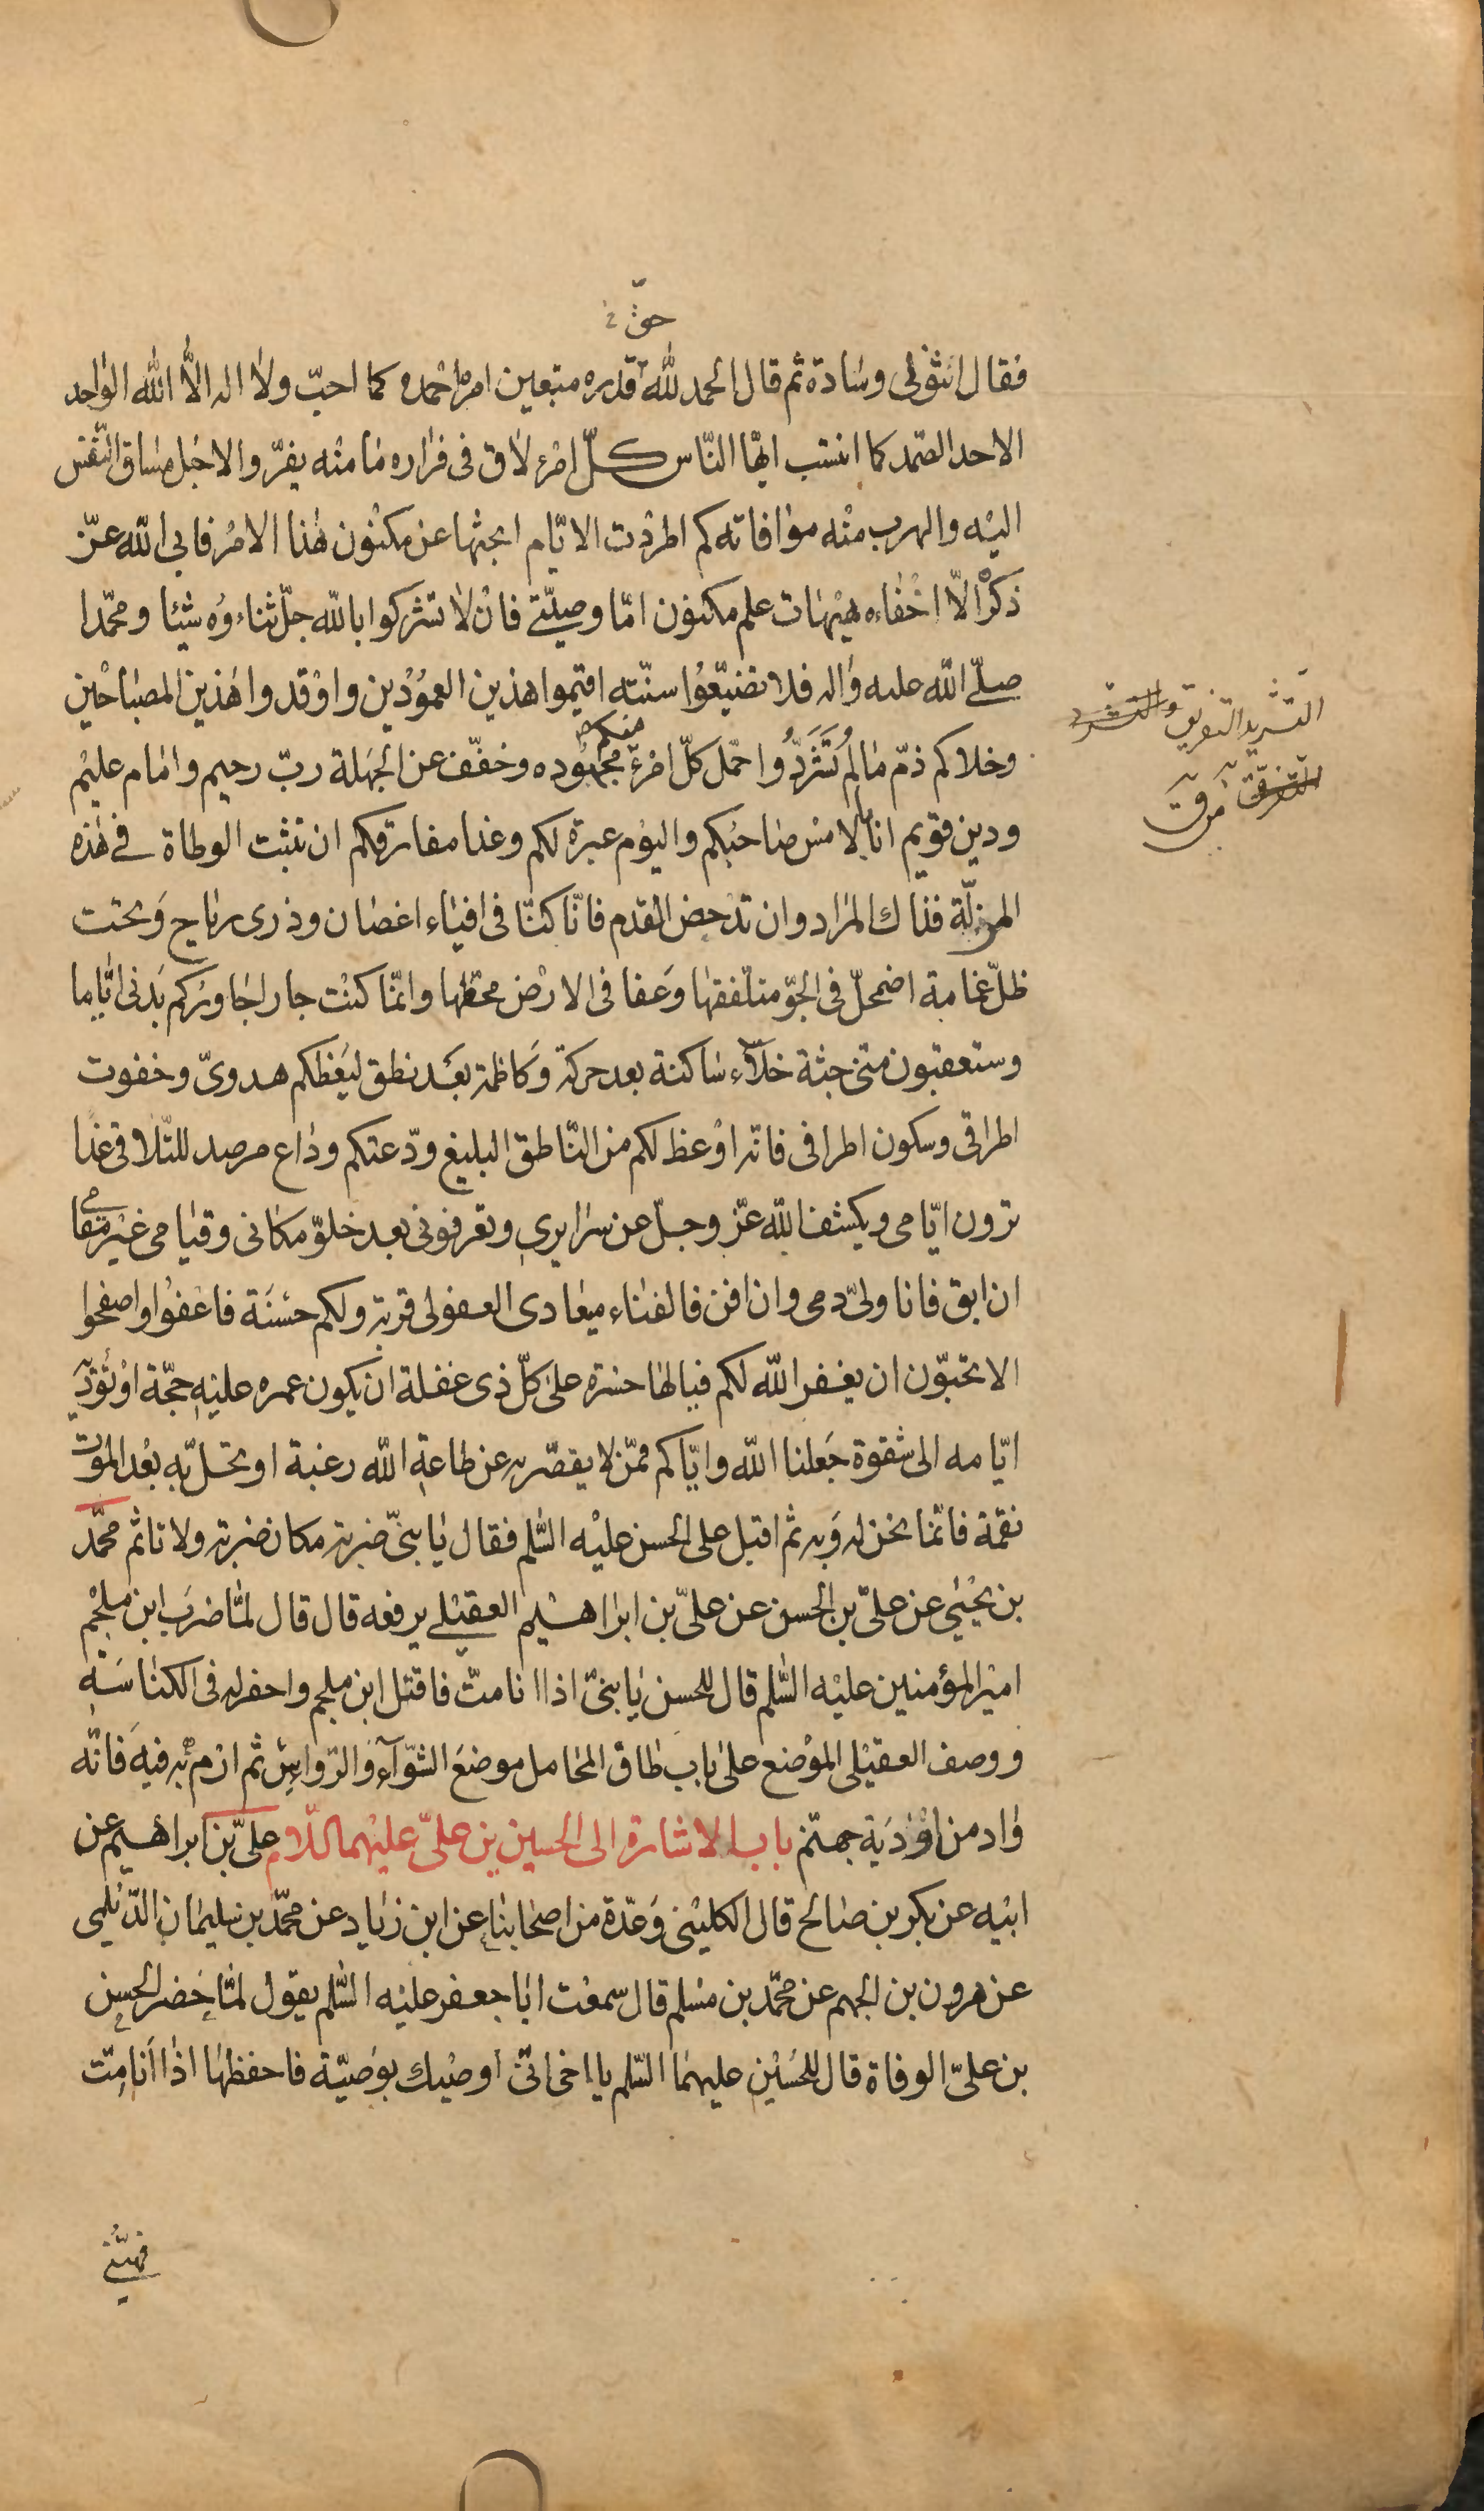 حقّ
فقال اثنوا لى وسادة ثم قال الحمد لله قدره متبعين امره احمده كما احبّ ولا اله الّا الله الواحد
الاحد الصّمد كما انتسب ايّها النّاس كلّ امرء لاق فى فراره ما منه يفرّ والاجل مساق النّفس
اليه والهرب منه موافاته كم اطردت الايّام ابحثها عن مكنون هذا الامر فابى الله عزّ
ذكره الّا اخفاءه هيهات علم مكنون امّا وصيّتى فان لا تشركوا بالله جلّ ثناءوه شيئا ومحمّدا
صلّى الله عليه واله فلا تضيّعوا سنّته اقيموا هذين العمودين واوقدوا هذين المصباحين
وخلاكم ذمّ ما لم تشردوا حمّل كلّ امرء منكم مجهوده وخفّف عن الجهلة ربّ رحيم وامام عليم
ودين قويم انا بالامس صاحبكم واليوم عبرة لكم وغدا مفارقكم ان تثبت الوطاة فى هذه
المزلّة فذاك المراد وان تدحض القدم فانّا كنّا فى افياء اغصان وذرى رياح وتحت
ظلّ غمامة اضمحلّ فى الجوّ متلفقها وعفا فى الارض محطها وانّما كنت جارا جاوركم بدنى ايّاما
وستعقبون منّى جثة خلاء ساكنة بعد حركة وكاظمة بعد نطق ليعظكم هدوىّ وخفوت
اطراقى وسكون اطرافى فانّه اوعظ لكم من النّاطق البليغ ودّعتكم وداع مرصد للتّلاقى غدا
ترون ايّامى ويكشف الله عزّ وجلّ عن سرايرى وتعرفونى بعد خلوّ مكانى وقيامى غير مقامى
ان ابق فانا ولىّ دمى وان افن فالفناء ميعادى العفو لى قربة ولكم حسنة فاعفوا واصفحوا
الا تحبّون ان يغفر الله لكم فيالها حسرة على كلّ ذى غفلة ان يكون عمره عليه حجّة او تؤدّيه
ايّامه الى شقوة جعلنا الله وايّاكم ممّن لا يقصّر به عن طاعة الله رغبة او تحلّ به بعد الموت
نقمة فانّما نحن له وبه ثم اقبل على الحسن عليه السّلم فقال يا بنىّ ضربة مكان ضربة ولا تاثم محمّد
بن يحيى عن علىّ بن الحسن عن علىّ بن ابراهيم العقيلى يرفعه قال قال لمّا ضرب ابن ملجم
امير المؤمنين عليه السّلم قال للحسن يا بنىّ اذا انا متّ فاقتل ابن ملجم واحفر له فى الكناسة
ووصف العقيلى الموضع على باب طاق المحامل موضع الشّوّاء والرّواس ثم ارم به فيه فانّه
واد من اودية جهنّم باب الاشارة الى الحسين بن علىّ عليهما السّلام علىّ بن ابراهيم عن
ابيه عن بكر بن صالح قال الكلينى وعدّة من اصحابنا عن ابن زياد عن محمّد بن سليمان الدّيلمى
عن هرون بن الجهم عن محمّد بن مسلم قال سمعت ابا جعفر عليه السّلم يقول لمّا حضر الحسن
بن علىّ الوفاة قال للحسين عليهما السّلم يا اخى انّى اوصيك بوصيّة فاحفظها اذا انا متّ
التشريد التفريق والتشرد
التفرق م ق